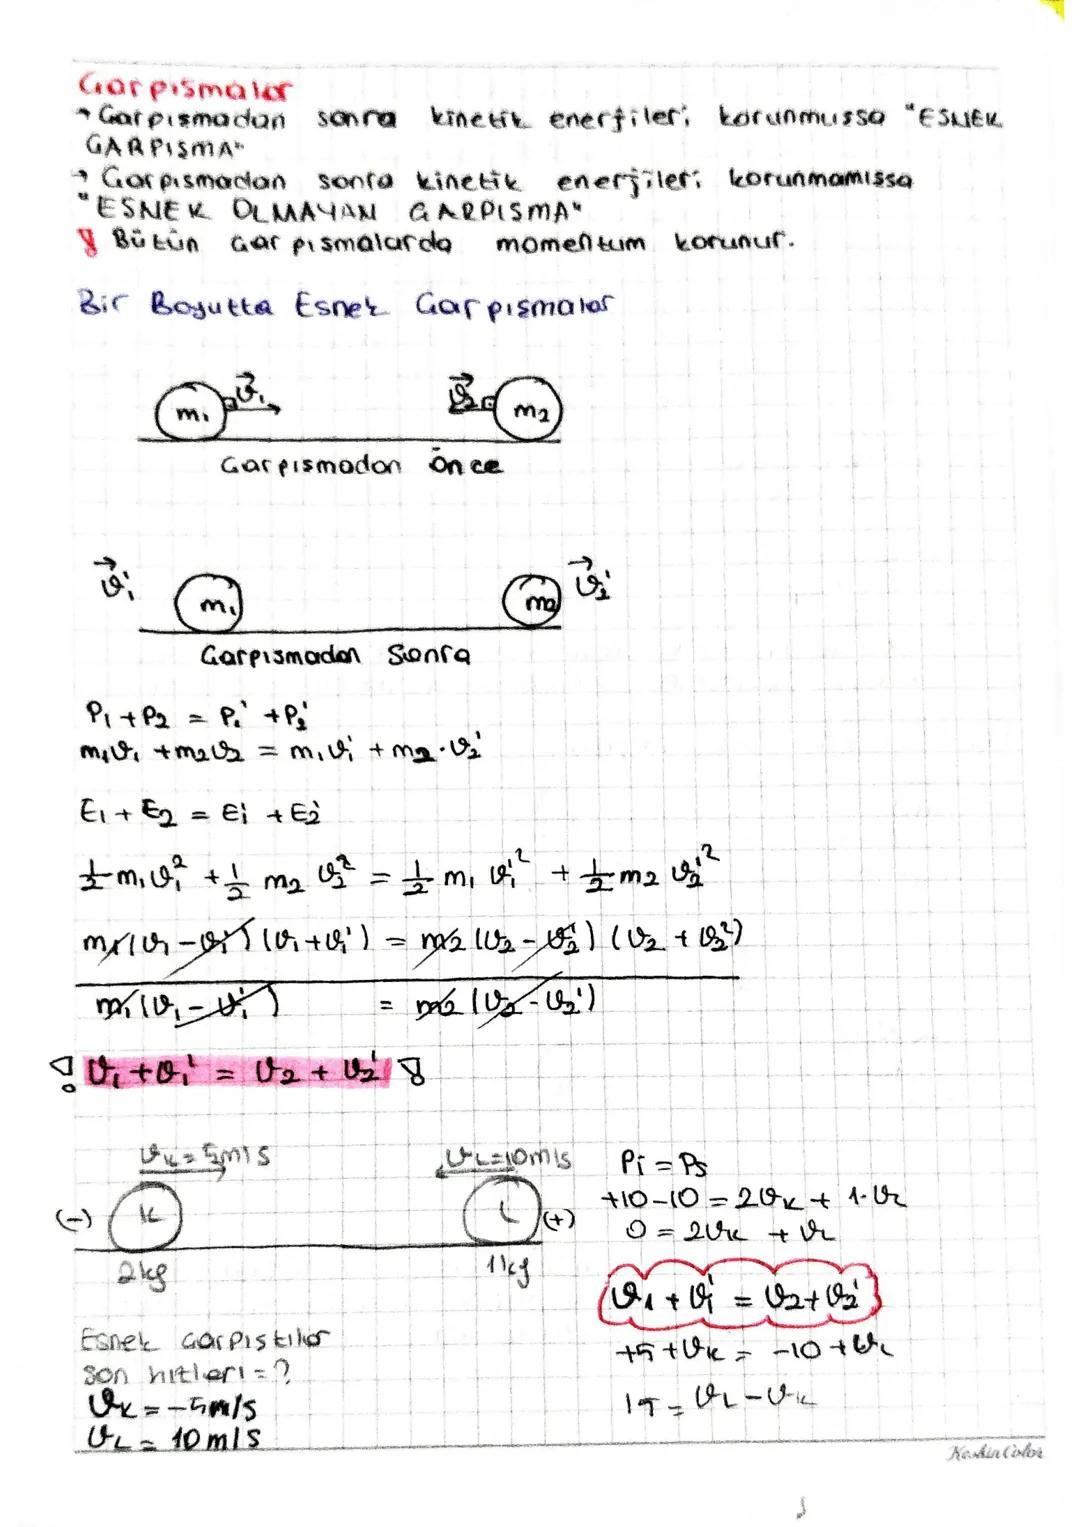 Çarpışmalar
→ Çarpışmadan sonra kinetik enerjileri korunmuşsa "ESNEK
ÇARPIŞMA"
→ Çarpışmadan sonra kinetik enerjileri korunmamışsa
"ESNEK OLMAYAN ÇARPIŞMA"
! Bütün Çarpışmalarda momentum korunur.
Bir Boyutta Esnek Çarpışmalar
m₁ v⃗₁ v⃗₂ m₂
Çarpışmadan önce
v⃗₁' m₁ m₂ v⃗₂'
Çarpışmadan Sonra
P₁ + P₂ = P₁' + P₂'
m₁v₁ + m₂v₂ = m₁v₁' + m₂·v₂'
E₁ + E₂ = E₁' + E₂'
½ m₁v₁² + ½ m₂ v₂² = ½ m₁ v₁'² + ½ m₂ v₂'²
m₁(v₁ - v₁') (v₁ + v₁') = m₂ (v₂ - v₂') (v₂ + v₂')
m₁(v₁ - v₁') = m₂ (v₂ - v₂')
! v₁ + v₁' = v₂ + v₂' !
vK = 5m/s vL = 10m/s
(-) K L (+)
2kg 1kg
Esnek çarpıştılar
son hızları = ?
vK = -5m/s
vL = 10m/s
Pi = Ps
+10-10 = 2vK + 1·vL
0 = 2vK + vL
v₁ + v₁' = v₂ + v₂'
+5 + vK = -10 + vL
15 = vL - vK
Keskin Color